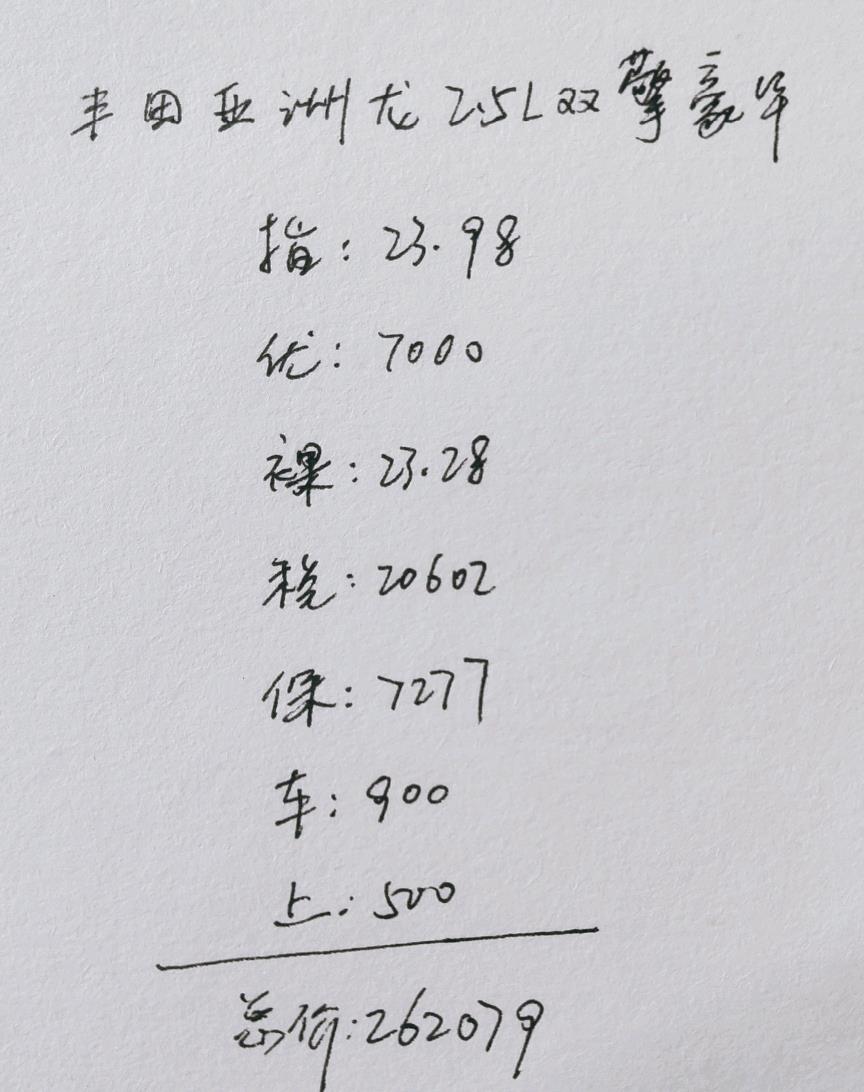 丰田亚洲龙2.5L双擎豪华
指:23.98
优:7000
裸:23.28
税:20602
保:7277
车:900
上:500
总价:262079